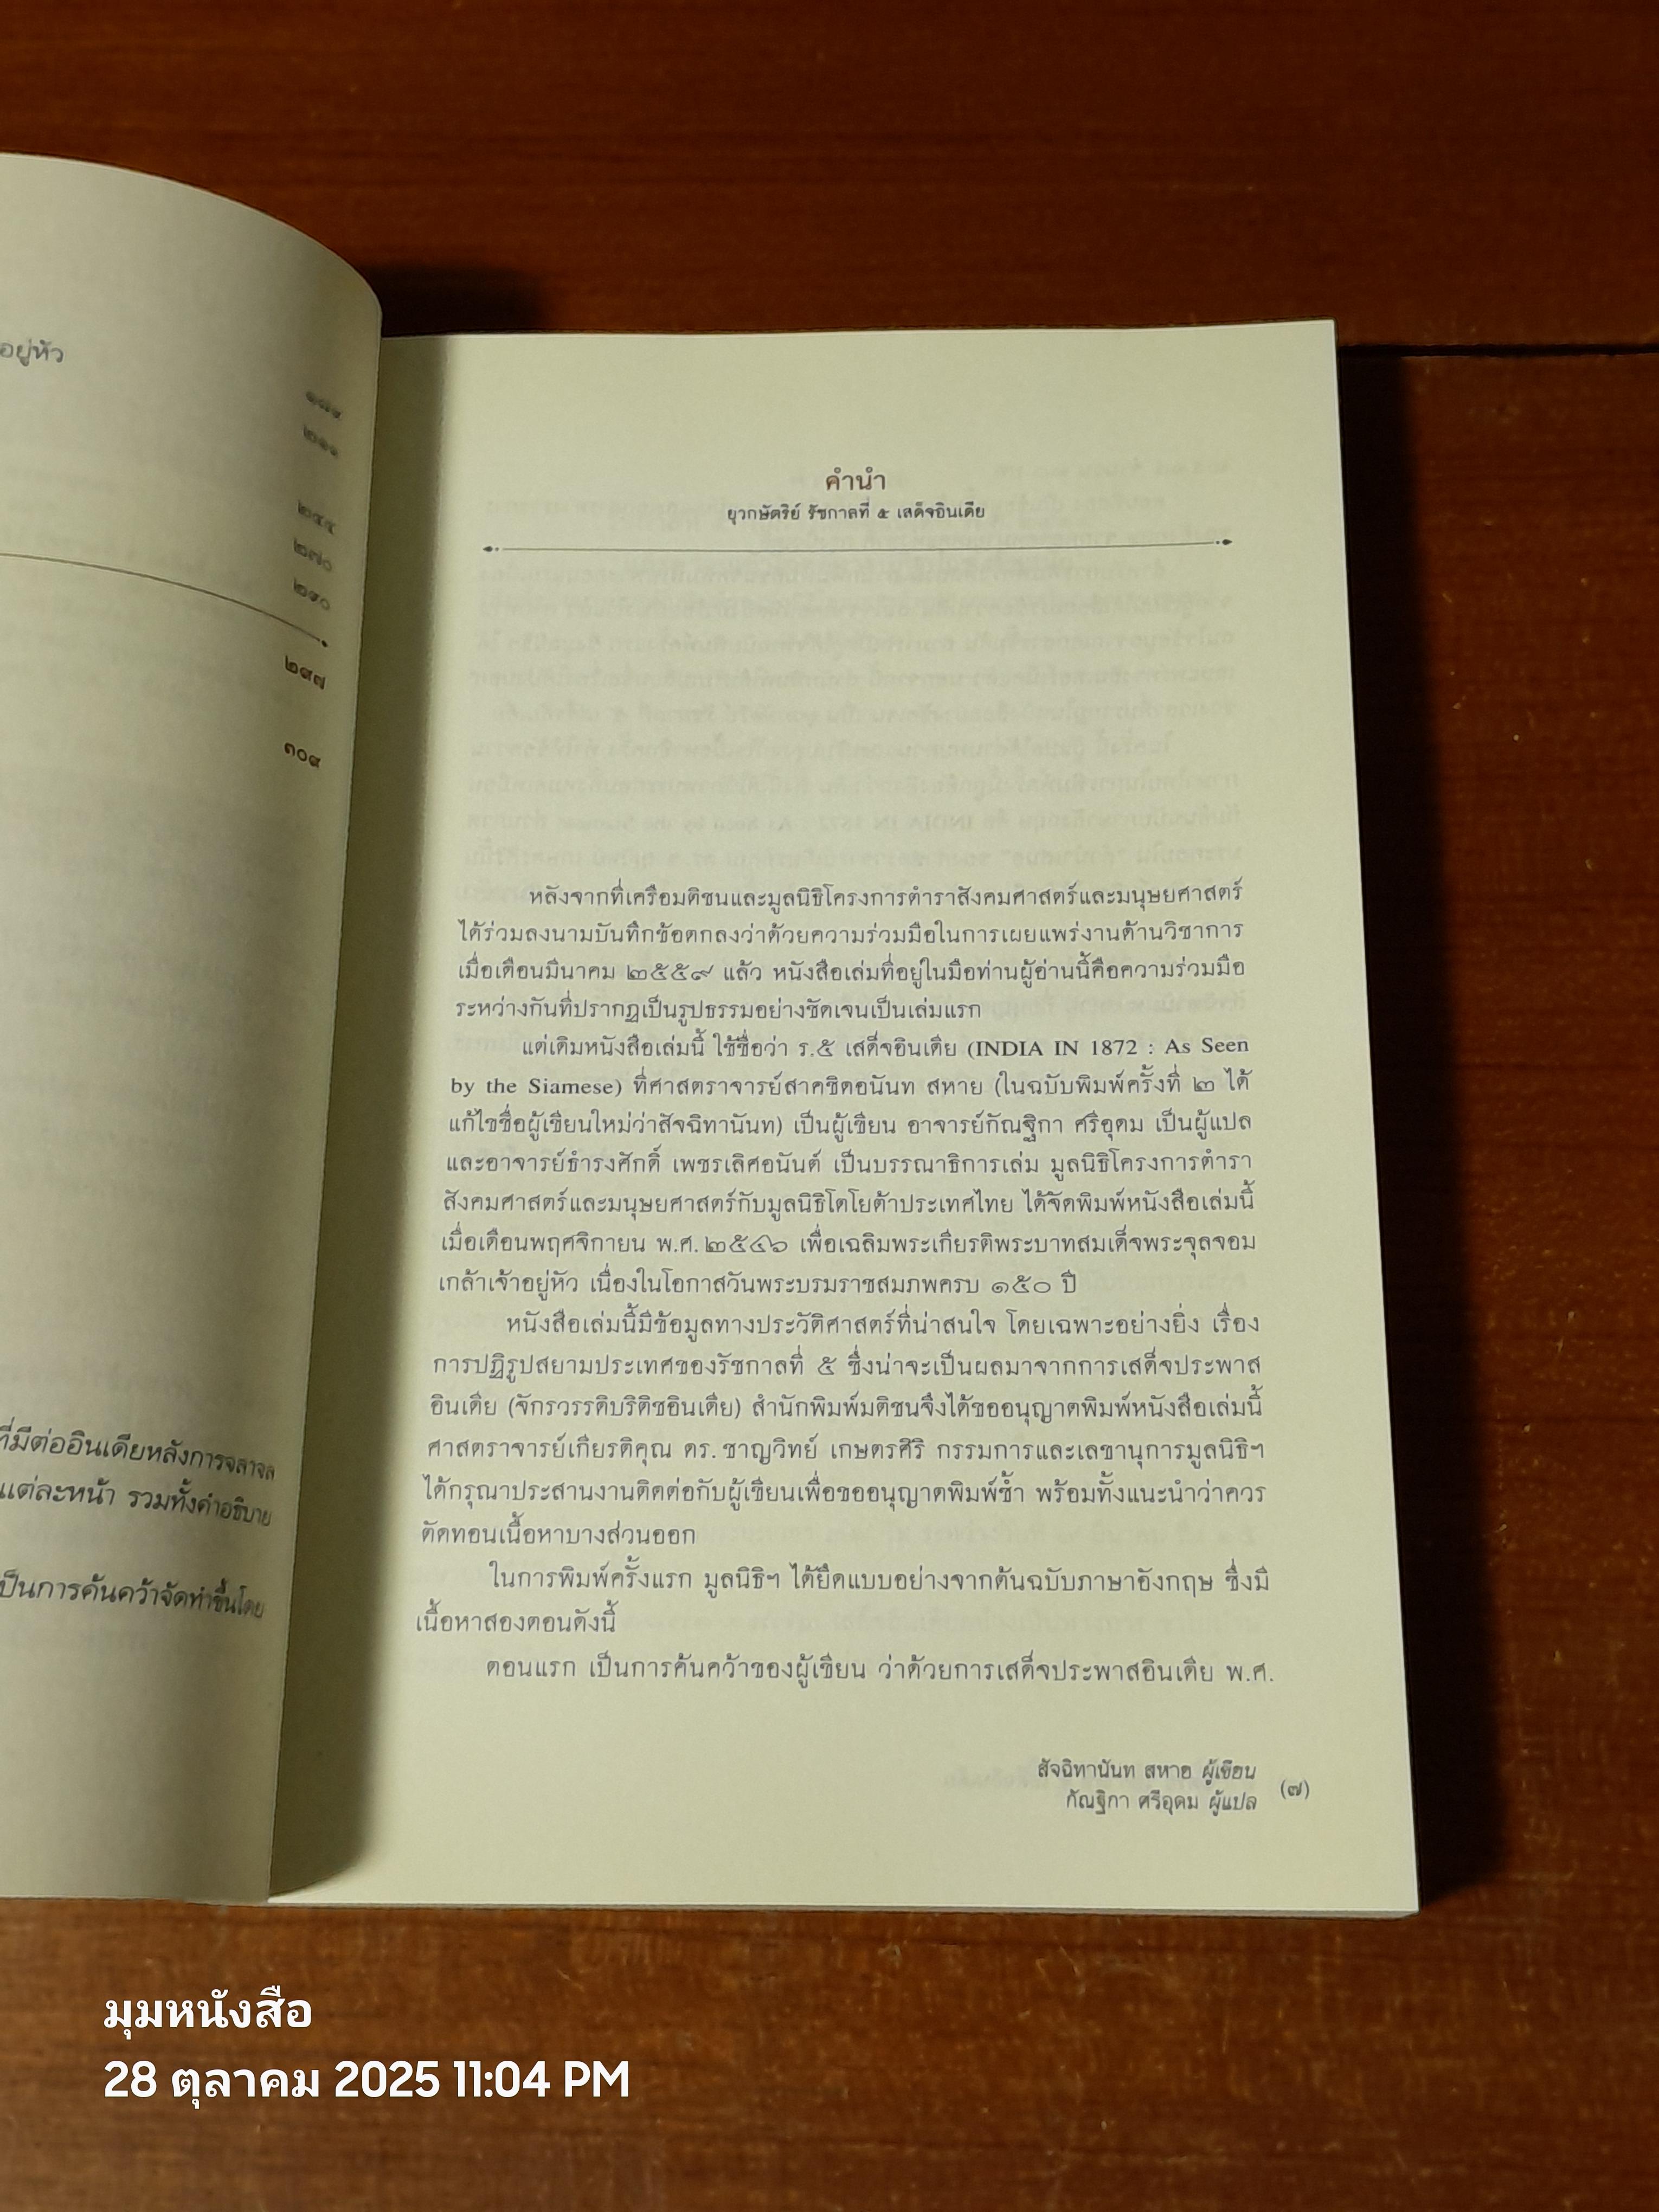 อยู่หัว
๒๑๑
๒๔๔
๒๗๐
๒๙๐
๒๙๗
๓๐๙
ที่มีต่ออินเดียหลังการจลาจล
แต่ละหน้า รวมทั้งคำอธิบาย
เป็นการค้นคว้าจัดทำขึ้นโดย
คำนำ
ยุวกษัตริย์ รัชกาลที่ ๕ เสด็จอินเดีย
หลังจากที่เครือมติชนและมูลนิธิโครงการตำราสังคมศาสตร์และมนุษยศาสตร์
ได้ร่วมลงนามบันทึกข้อตกลงว่าด้วยความร่วมมือในการเผยแพร่งานด้านวิชาการ
เมื่อเดือนมีนาคม ๒๕๕๙ แล้ว หนังสือเล่มที่อยู่ในมือท่านผู้อ่านนี้คือความร่วมมือ
ระหว่างกันที่ปรากฏเป็นรูปธรรมอย่างชัดเจนเป็นเล่มแรก
แต่เดิมหนังสือเล่มนี้ ใช้ชื่อว่า ร.๕ เสด็จอินเดีย (INDIA IN 1872 : As Seen
by the Siamese) ที่ศาสตราจารย์สาคชิดอนันท สหาย (ในฉบับพิมพ์ครั้งที่ ๒ ได้
แก้ไขชื่อผู้เขียนใหม่ว่าสัจฉิทานันท) เป็นผู้เขียน อาจารย์กัณฐิกา ศรีอุดม เป็นผู้แปล
และอาจารย์ธำรงศักดิ์ เพชรเลิศอนันต์ เป็นบรรณาธิการเล่ม มูลนิธิโครงการตำรา
สังคมศาสตร์และมนุษยศาสตร์กับมูลนิธิโตโยต้าประเทศไทย ได้จัดพิมพ์หนังสือเล่มนี้
เมื่อเดือนพฤศจิกายน พ.ศ. ๒๕๔๖ เพื่อเฉลิมพระเกียรติพระบาทสมเด็จพระจุลจอม
เกล้าเจ้าอยู่หัว เนื่องในโอกาสวันพระบรมราชสมภพครบ ๑๕๐ ปี
หนังสือเล่มนี้มีข้อมูลทางประวัติศาสตร์ที่น่าสนใจ โดยเฉพาะอย่างยิ่ง เรื่อง
การปฏิรูปสยามประเทศของรัชกาลที่ ๕ ซึ่งน่าจะเป็นผลมาจากการเสด็จประพาส
อินเดีย (จักรวรรดิบริติชอินเดีย) สำนักพิมพ์มติชนจึงได้ขออนุญาตพิมพ์หนังสือเล่มนี้
ศาสตราจารย์เกียรติคุณ ดร. ชาญวิทย์ เกษตรศิริ กรรมการและเลขานุการมูลนิธิฯ
ได้กรุณาประสานงานติดต่อกับผู้เขียนเพื่อขออนุญาตพิมพ์ซ้ำ พร้อมทั้งแนะนำว่าควร
ตัดทอนเนื้อหาบางส่วนออก
ในการพิมพ์ครั้งแรก มูลนิธิฯ ได้ยึดแบบอย่างจากต้นฉบับภาษาอังกฤษ ซึ่งมี
เนื้อหาสองตอนดังนี้
ตอนแรก เป็นการค้นคว้าของผู้เขียน ว่าด้วยการเสด็จประพาสอินเดีย พ.ศ.
สัจฉิทานันท สหาย ผู้เขียน
กัณฐิกา ศรีอุดม ผู้แปล
(๗)
มุมหนังสือ
28 ตุลาคม 2025 11:04 PM